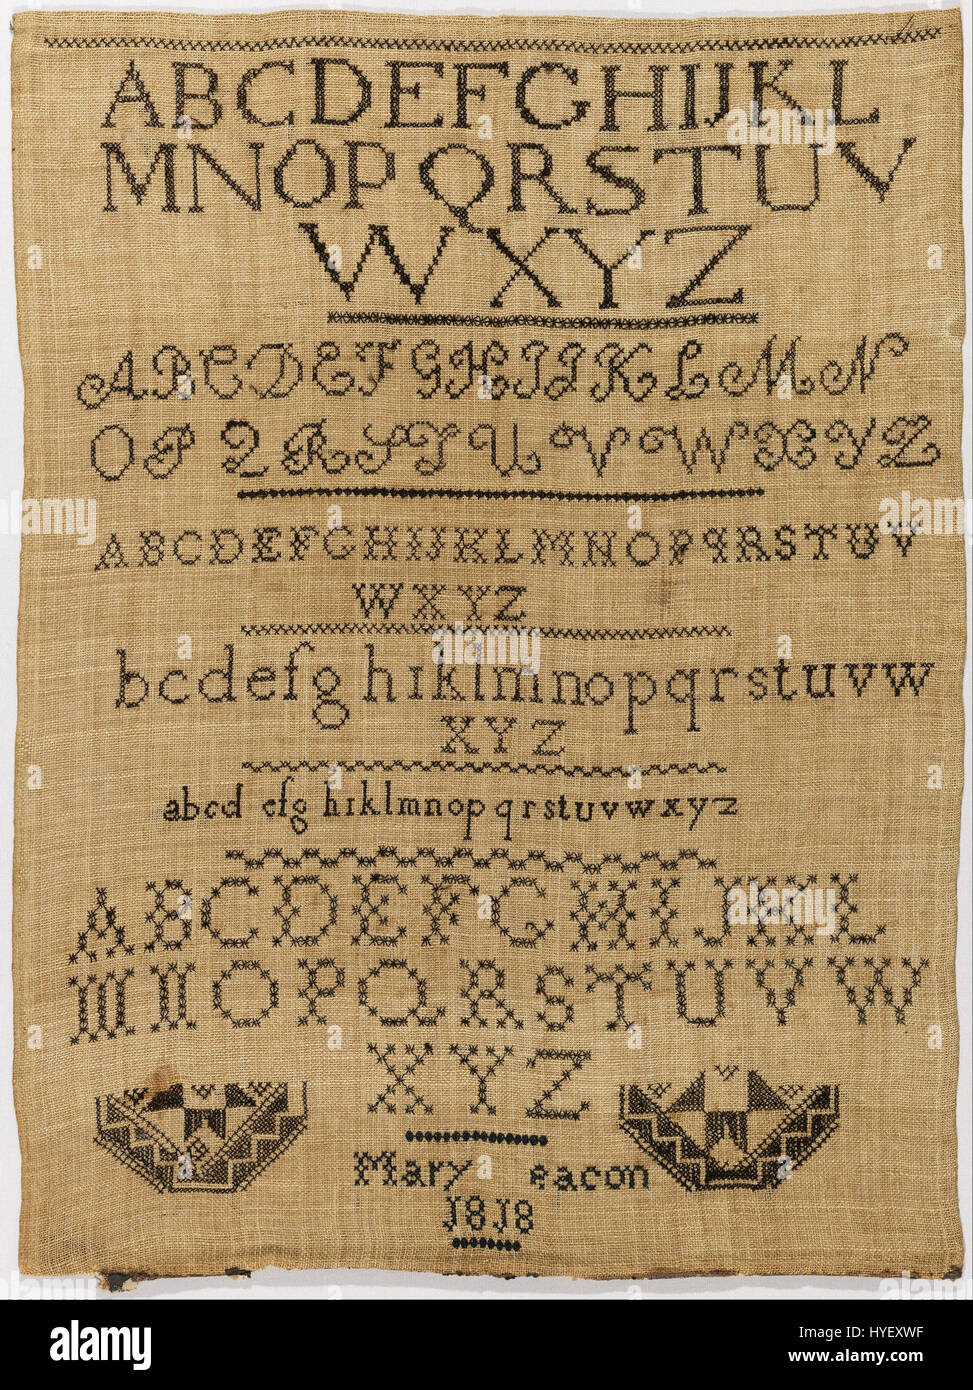 ABCDEFGHIJKL
MNOPQRSTUV
WXYZ
ABCDEFGHIJKLMN
OPQRSTUVWXYZ
ABCDEFGHIJKLMNOPQRSTUV
WXYZ
bcdefghıklmnopqrstuvw
XYZ
abcd efg hıklmnopqrstuvwxyz
ABCDEFGHIJKL
MNOPQRSTUVW
XYZ
Mary
1818
alamy stock photo
HYEXWF
www.alamy.com